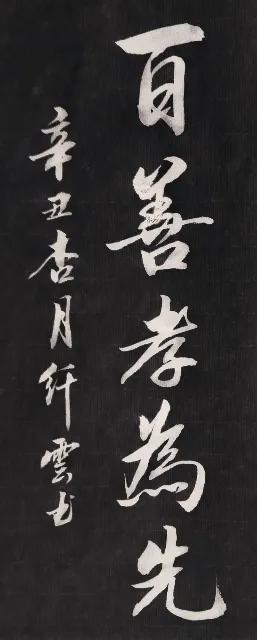 百善孝為先
辛丑杏月纤雲书